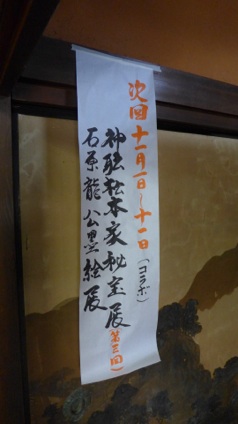 次回 十一月一日～十一日（コラボ）
神 松本家秘宝展（第三回）
石原龍 公黒絵展